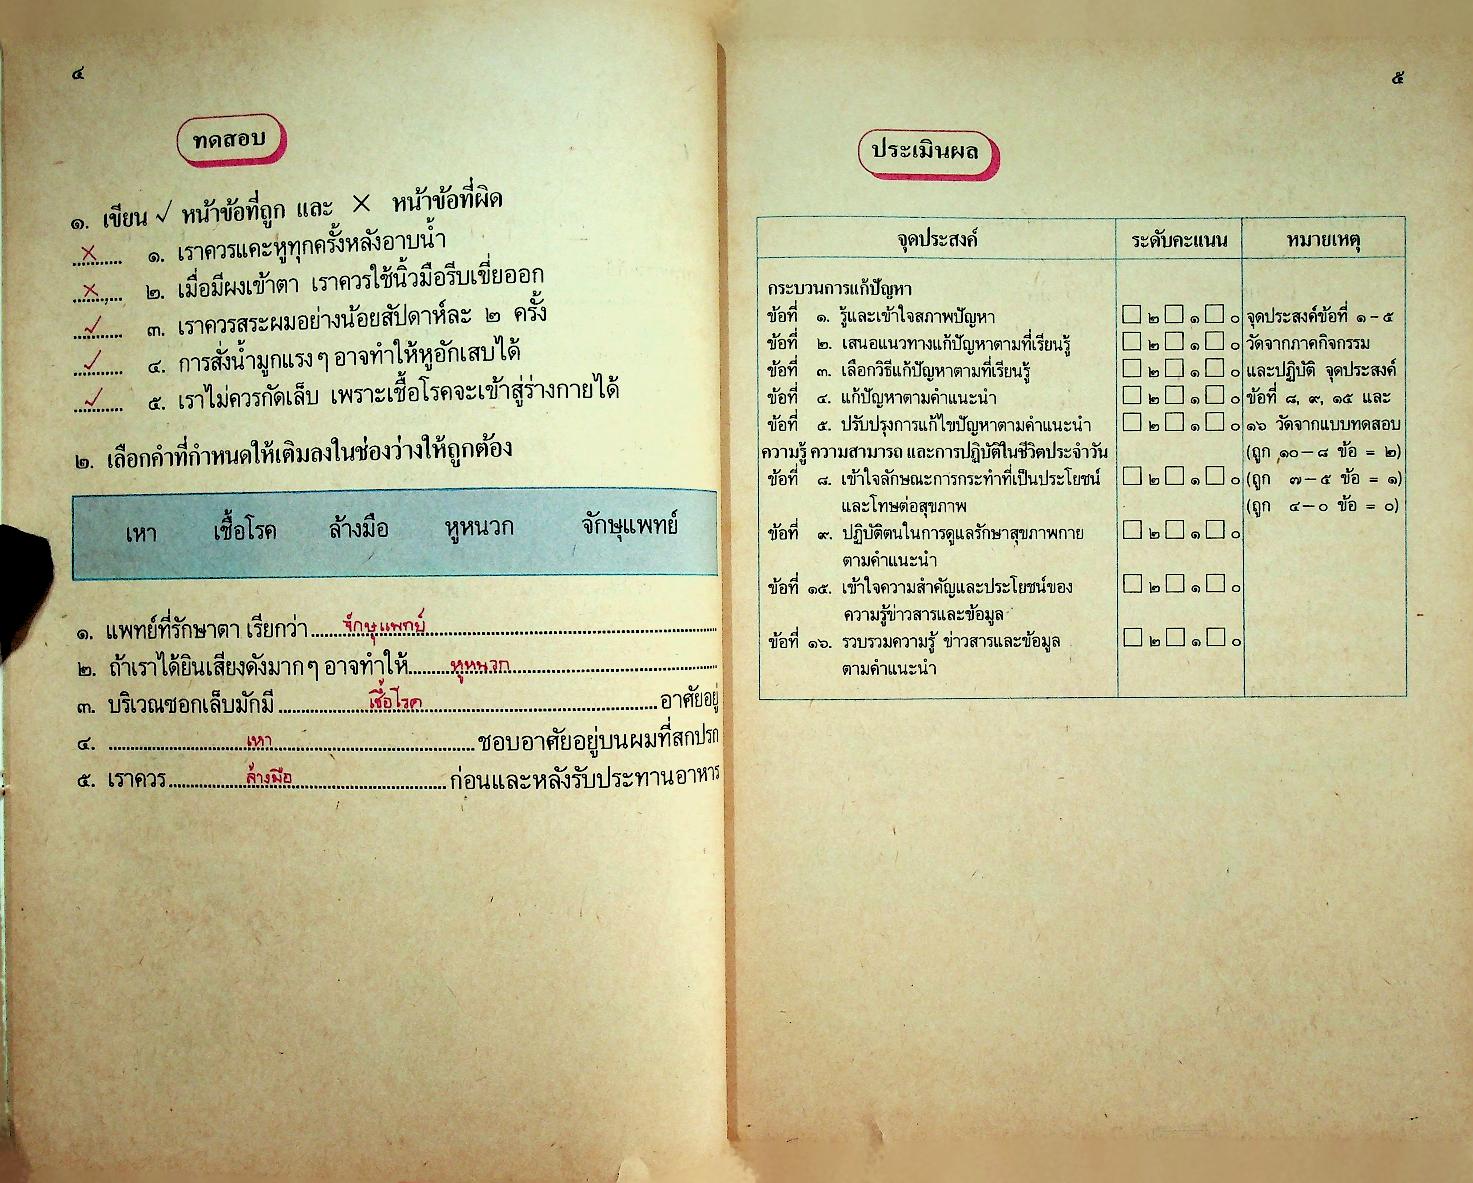 ๔
ทดสอบ
๑. เขียน √ หน้าข้อที่ถูก และ × หน้าข้อที่ผิด
× ๑. เราควรแคะหูทุกครั้งหลังอาบน้ำ
× ๒. เมื่อมีผงเข้าตา เราควรใช้นิ้วมือรีบเขี่ยออก
✓ ๓. เราควรสระผมอย่างน้อยสัปดาห์ละ ๒ ครั้ง
✓ ๔. การสั่งน้ำมูกแรง ๆ อาจทำให้หูอักเสบได้
✓ ๕. เราไม่ควรกัดเล็บ เพราะเชื้อโรคจะเข้าสู่ร่างกายได้
๒. เลือกคำที่กำหนดให้เติมลงในช่องว่างให้ถูกต้อง
เหา เชื้อโรค ล้างมือ หูหนวก จักษุแพทย์
๑. แพทย์ที่รักษาตา เรียกว่า จักษุแพทย์
๒. ถ้าเราได้ยินเสียงดังมาก ๆ อาจทำให้ หูหนวก
๓. บริเวณซอกเล็บมักมี เชื้อโรค อาศัยอยู่
๔. เหา ชอบอาศัยอยู่บนผมที่สกปรก
๕. เราควร ล้างมือ ก่อนและหลังรับประทานอาหาร
๕
ประเมินผล
จุดประสงค์ ระดับคะแนน หมายเหตุ
กระบวนการแก้ปัญหา
ข้อที่ ๑. รู้และเข้าใจสภาพปัญหา □ ๒ □ ๑ □ ๐ จุดประสงค์ข้อที่ ๑-๕
ข้อที่ ๒. เสนอแนวทางแก้ปัญหาตามที่เรียนรู้ □ ๒ □ ๑ □ ๐ วัดจากภาคกิจกรรม
ข้อที่ ๓. เลือกวิธีแก้ปัญหาตามที่เรียนรู้ □ ๒ □ ๑ □ ๐ และปฏิบัติ จุดประสงค์
ข้อที่ ๔. แก้ปัญหาตามคำแนะนำ □ ๒ □ ๑ □ ๐ ข้อที่ ๘, ๙, ๑๕ และ
ข้อที่ ๕. ปรับปรุงการแก้ไขปัญหาตามคำแนะนำ □ ๒ □ ๑ □ ๐ ๑๖ วัดจากแบบทดสอบ
ความรู้ ความสามารถ และการปฏิบัติในชีวิตประจำวัน (ถูก ๑๐-๘ ข้อ = ๒)
ข้อที่ ๘. เข้าใจลักษณะการกระทำที่เป็นประโยชน์ □ ๒ □ ๑ □ ๐ (ถูก ๗-๕ ข้อ = ๑)
และโทษต่อสุขภาพ (ถูก ๔-๐ ข้อ = ๐)
ข้อที่ ๙. ปฏิบัติตนในการดูแลรักษาสุขภาพกาย □ ๒ □ ๑ □ ๐
ตามคำแนะนำ
ข้อที่ ๑๕. เข้าใจความสำคัญและประโยชน์ของ □ ๒ □ ๑ □ ๐
ความรู้ข่าวสารและข้อมูล
ข้อที่ ๑๖. รวบรวมความรู้ ข่าวสารและข้อมูล □ ๒ □ ๑ □ ๐
ตามคำแนะนำ